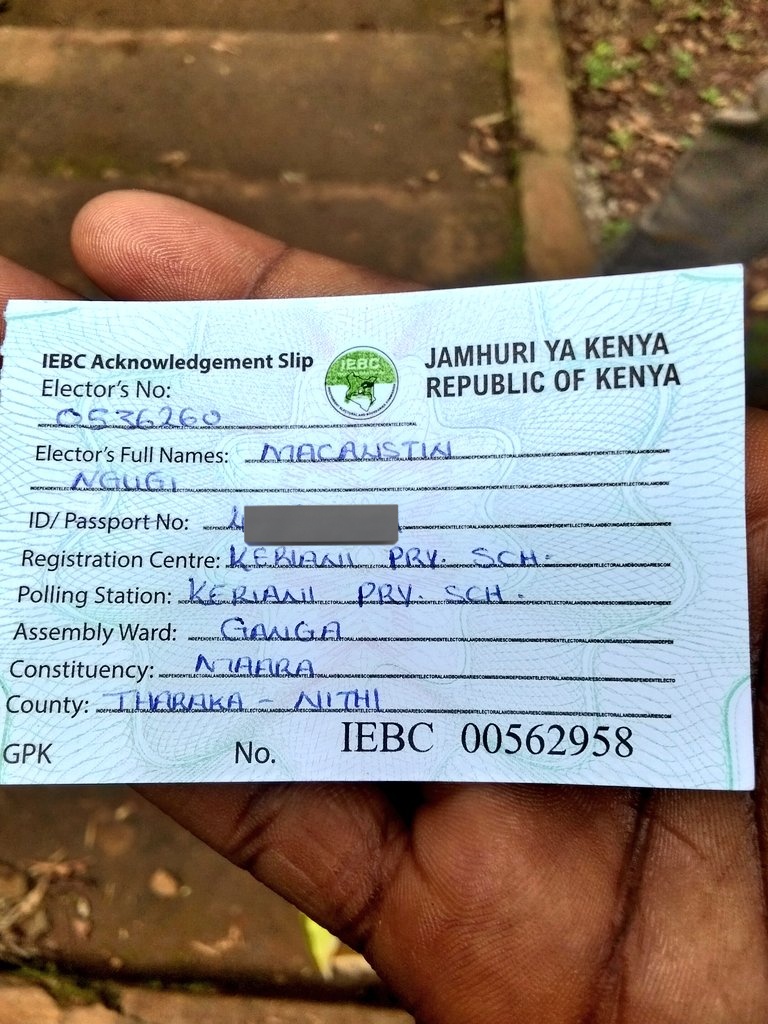 IEBC Acknowledgement Slip
IEBC
JAMHURI YA KENYA
REPUBLIC OF KENYA
Elector's No:
0536260
Elector's Full Names: MACAUSTIN
NGUGI
ID/ Passport No:
Registration Centre: KERIANI PRY. SCH.
Polling Station: KERIANI PRY. SCH.
Assembly Ward: GANGA
Constituency: MAARA
County: THARAKA - NITHI
GPK No. IEBC 00562958